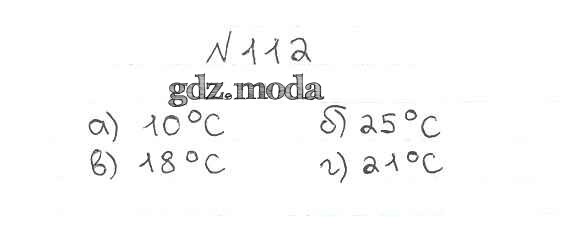 N 112
gdz.moda
а) 10°C б) 25°C
в) 18°C г) 21°C